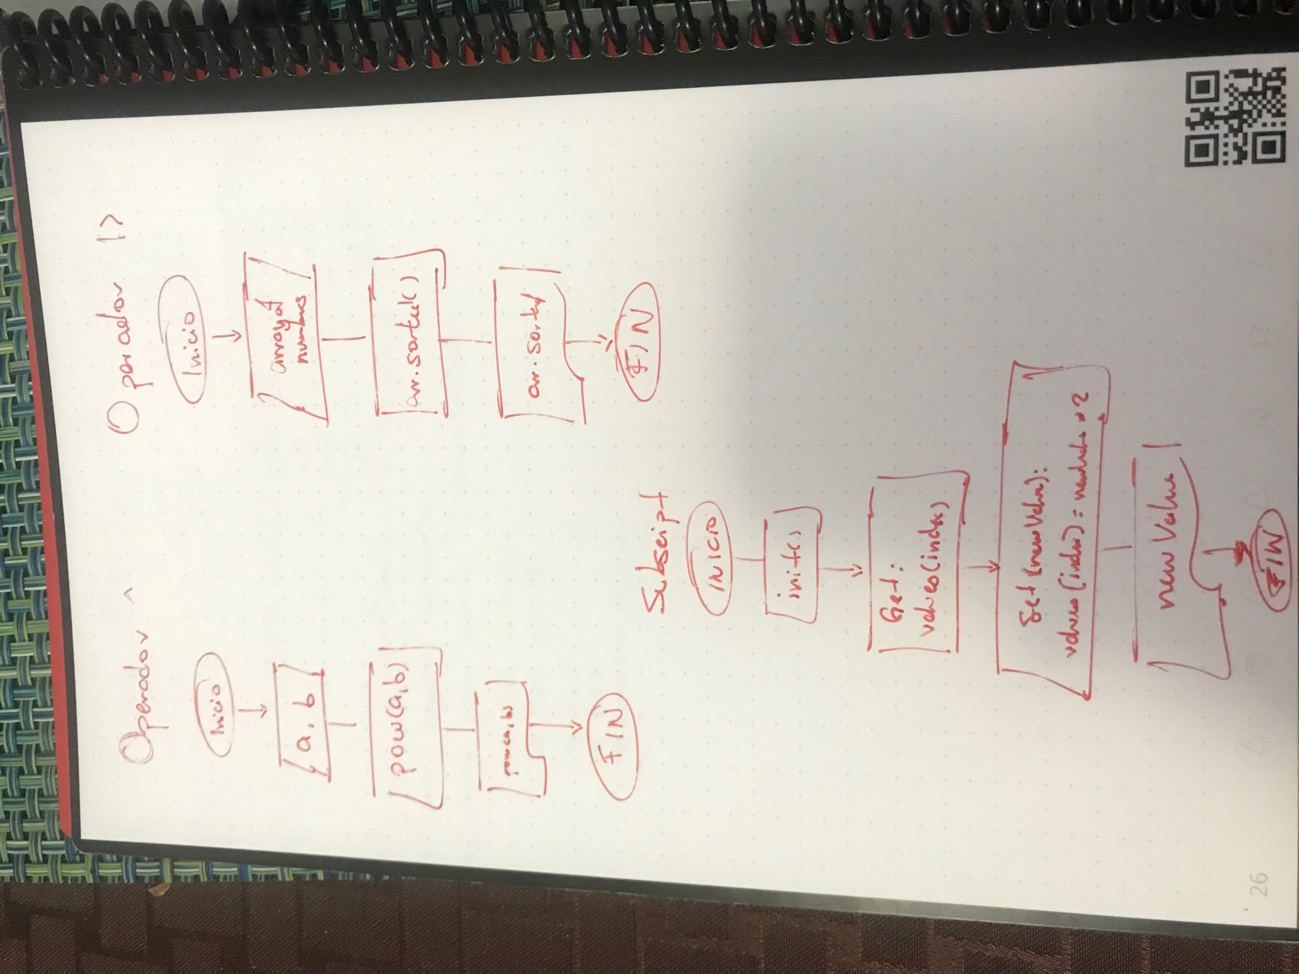 Operador ^
Inicio
a, b
pow(a,b)
pow(a,b)
FIN
Operador |>
Inicio
array of
numbers
arr.sorted()
arr.sorted
FIN
Subscript
INICIO
init()
Get:
values(index)
Set (newValue):
values(index) = newValue * 2
newValue
FIN
26